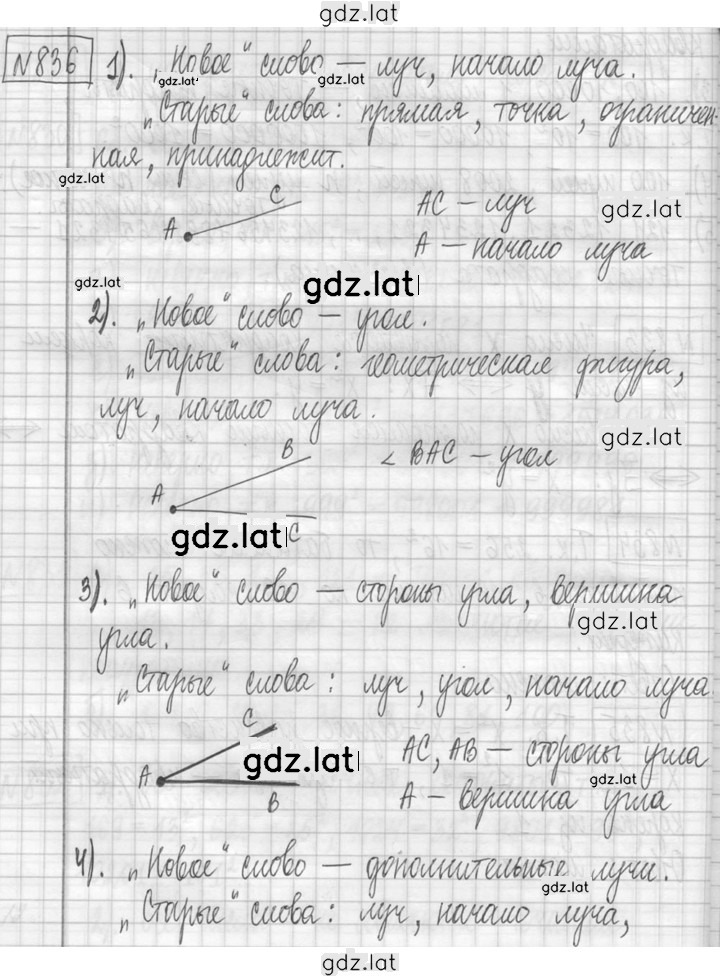 gdz.lat
№836 1). „Новое" слово — луч, начало луча.
gdz.lat gdz.lat
„Старые" слова: прямая, точка, ограничен-
ная, принадлежит.
gdz.lat
C AC — луч gdz.lat
A A — начало луча
gdz.lat gdz.lat
2). „Новое" слово — угол.
„Старые" слова: геометрическая фигура,
луч, начало луча.
gdz.lat
B ∠ BAC — угол
A
gdz.lat C
3). „Новое" слово — стороны угла, вершина
gdz.lat
угла.
„Старые" слова: луч, угол, начало луча
C AC, AB — стороны угла
gdz.lat gdz.lat
A B A — вершина угла
4). „Новое" слово — дополнительные лучи.
gdz.lat
„Старые" слова: луч, начало луча,
gdz.lat